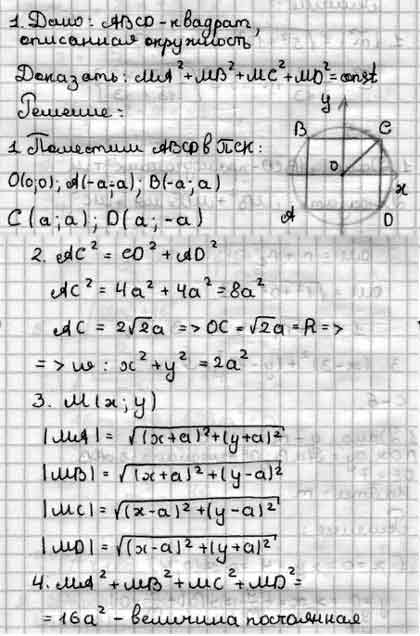 1. Дано: ABCD - квадрат,
описанная окружность
Доказать: MA²+MB²+MC²+MD²=const
Решение:
1. Поместим ABCD в ПСК:
O(0;0); A(-a;-a); B(-a;a)
C(a;a); D(a;-a)
y
B
C
O
x
A
D
2. AC² = CD² + AD²
AC² = 4a² + 4a² = 8a²
AC = 2√2a => OC = √2a = R =>
=> w: x² + y² = 2a²
3. M(x; y)
|MA| = √(x+a)²+(y+a)²
|MB| = √(x+a)²+(y-a)²
|MC| = √(x-a)²+(y-a)²
|MD| = √(x-a)²+(y+a)²
4. MA²+MB²+MC²+MD²=
= 16a² - величина постоянная